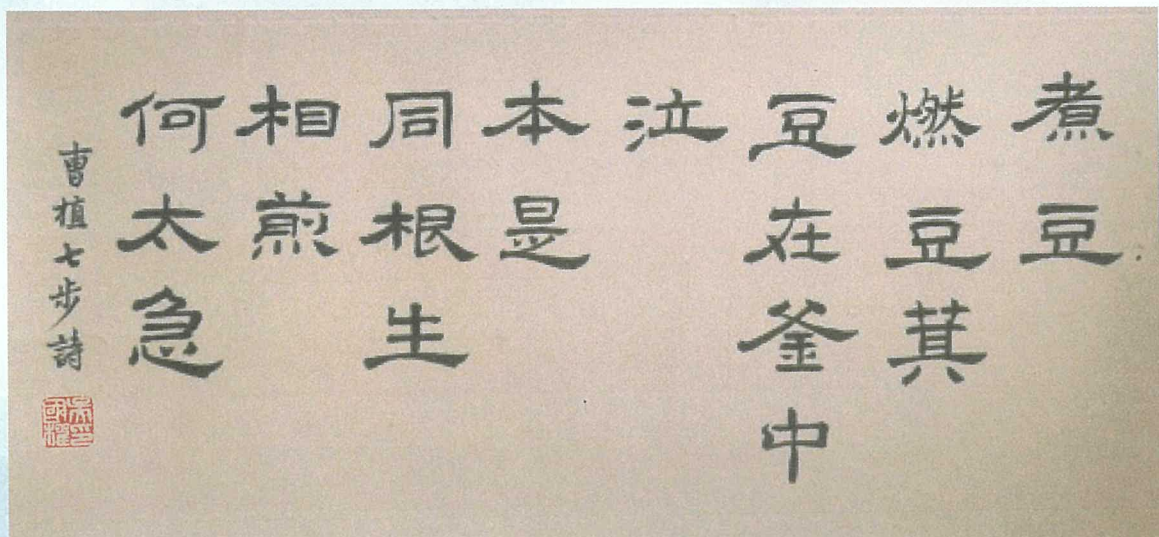 煮豆
燃豆萁
豆在釜中
泣
本是
同根生
相煎
何太急
曹植七步詩